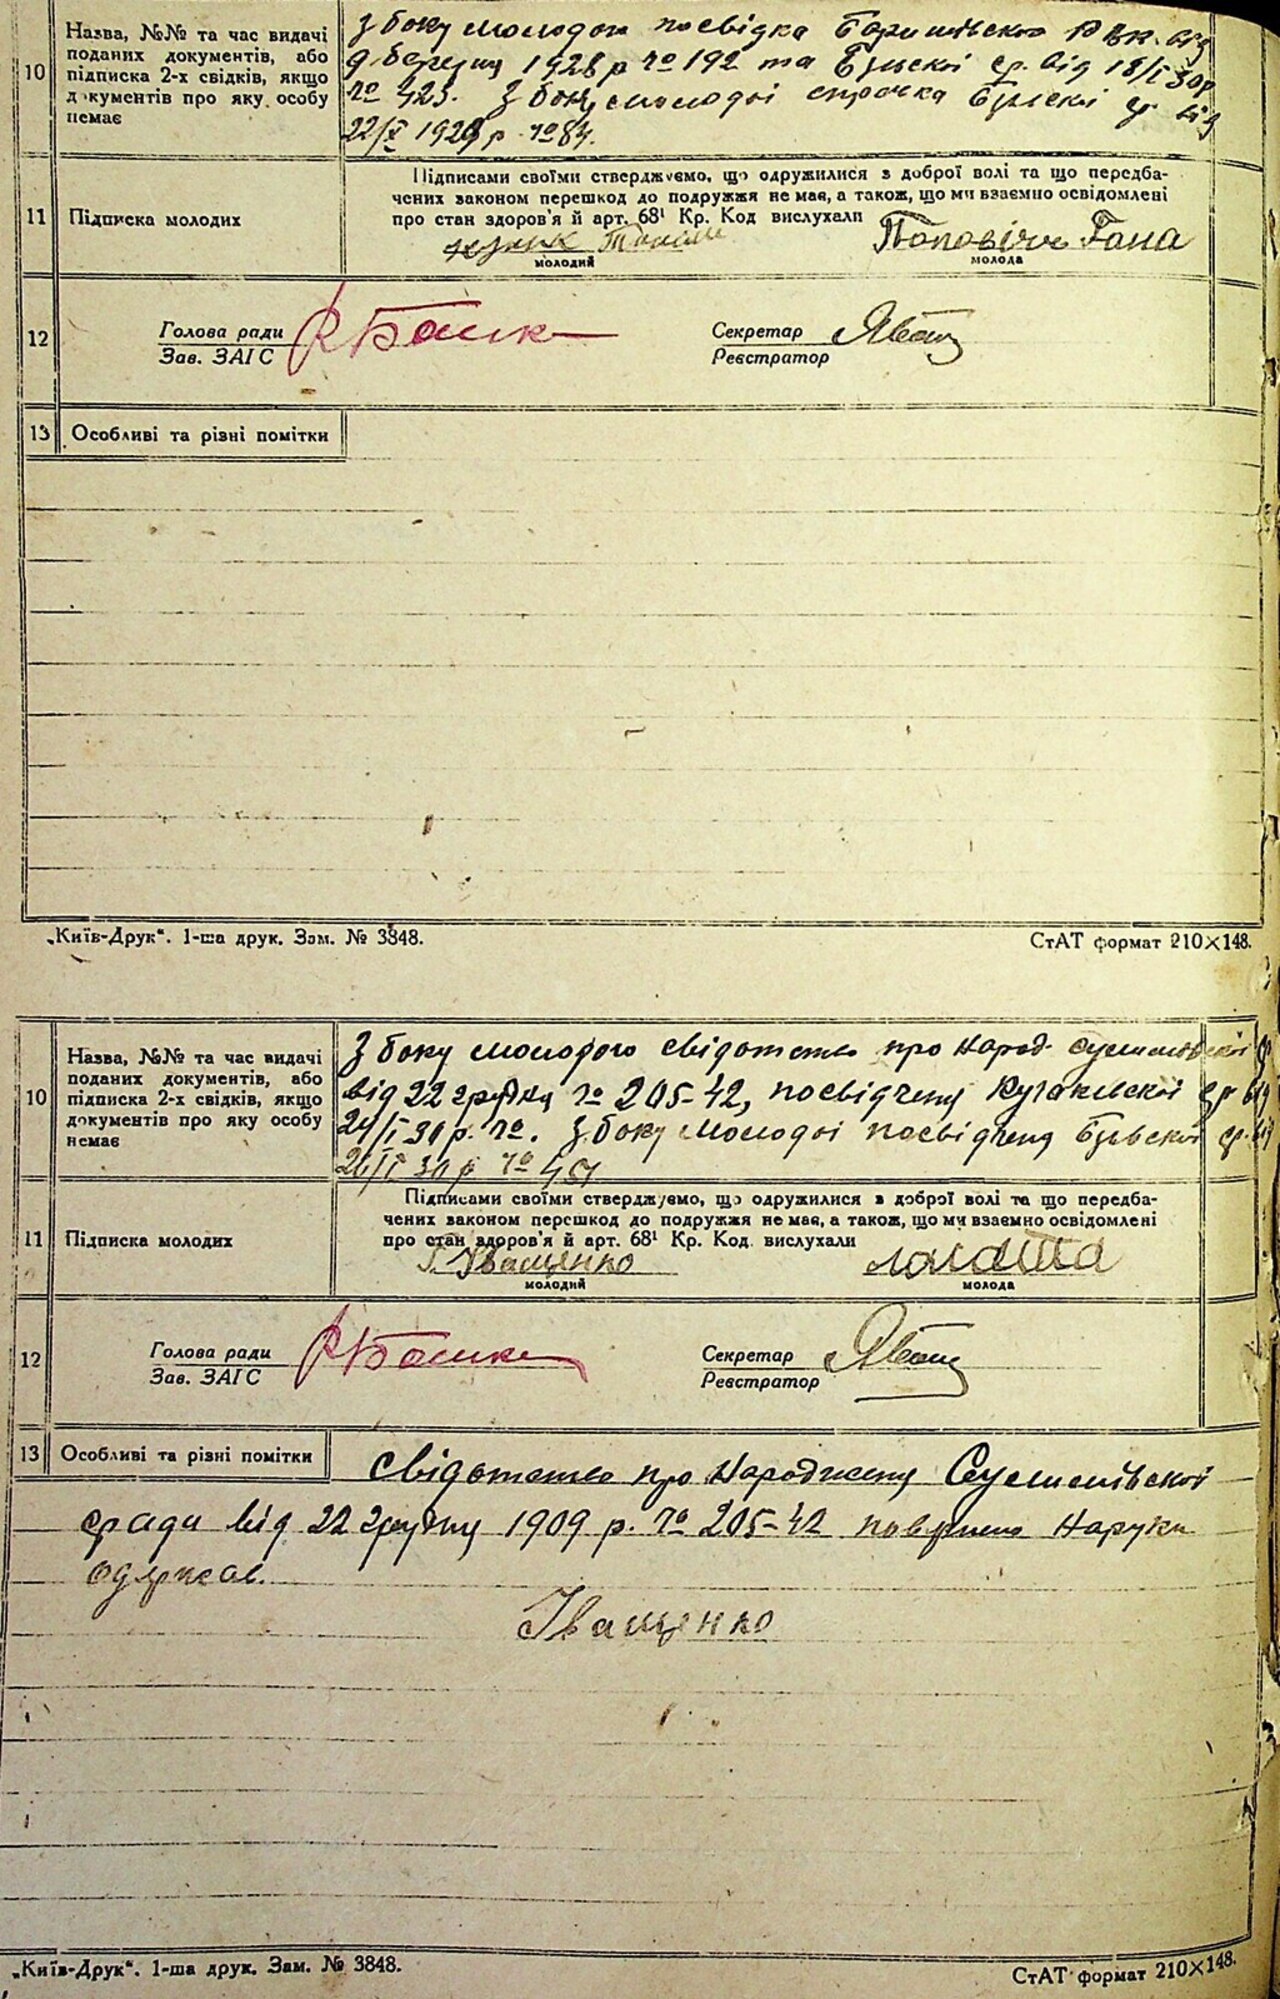 10
Назва, №№ та час видачі
поданих документів, або
підписка 2-х свідків, якщо
документів про яку особу
немає
З боку молодого посвідка Баришівсько РВК. від
9 березня 1928 р № 192 та ср. від 18/I 30р
№ 423. З боку молодої ср від
22/X 1929 р. № 84.
11
Підписка молодих
Підписами своїми стверджуємо, що одружилися з доброї волі та що передба-
чених законом перешкод до подружжя не має, а також, що ми взаємно освідомлені
про стан здоров'я й арт. 68¹ Кр. Код вислухали
Попович Гана
молодий
молода
12
Голова ради
Зав. ЗАГС
Секретар
Реєстратор
13
Особливі та різні помітки
„Київ-Друк“. 1-ша друк. Зам. № 3848.
СтАТ формат 210×148.
10
Назва, №№ та час видачі
поданих документів, або
підписка 2-х свідків, якщо
документів про яку особу
немає
З боку молодого свідотство про народ.
від 22 грудня № 205-42, посвідчення ср від
24/I 30 р. №. З боку молодої посвідчення ср. від
26/I 30 р №
11
Підписка молодих
Підписами своїми стверджуємо, що одружилися з доброї волі та що передба-
чених законом перешкод до подружжя не має, а також, що ми взаємно освідомлені
про стан здоров'я й арт. 68¹ Кр. Код. вислухали
Іващенко
молодий
молода
12
Голова ради
Зав. ЗАГС
Секретар
Реєстратор
13
Особливі та різні помітки
свідотство про народження
сради від 22 грудня 1909 р. № 205-42 наруки
одержав.
Іващенко
„Київ-Друк“. 1-ша друк. Зам. № 3848.
СтАТ формат 210×148.